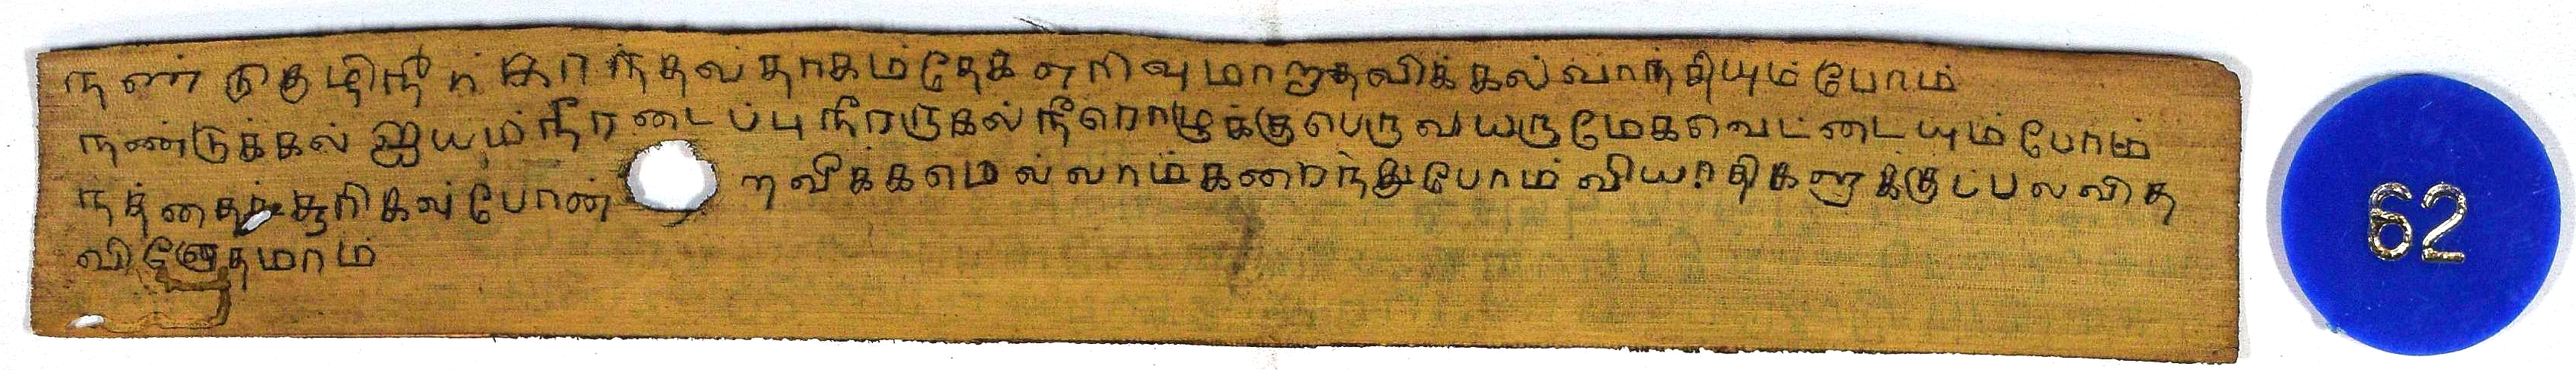 நண்டுகுழிநீர் காந்தல் தாகம் தேக எரிவு மாறாதவிக்கல் வாந்தியும் போம்
நண்டுக்கல் ஐயம் நீரடைப்பு நீரருகல் நீரொழுக்கு பெருவயரு மேகவெட்டையும் போம்
நத்தைச்சூரிகல்போன் றவீக்கமெல்லாம் கரைந்துபோம் வியாதிகளுக்குட்பலவித
வினோதமாம்
62